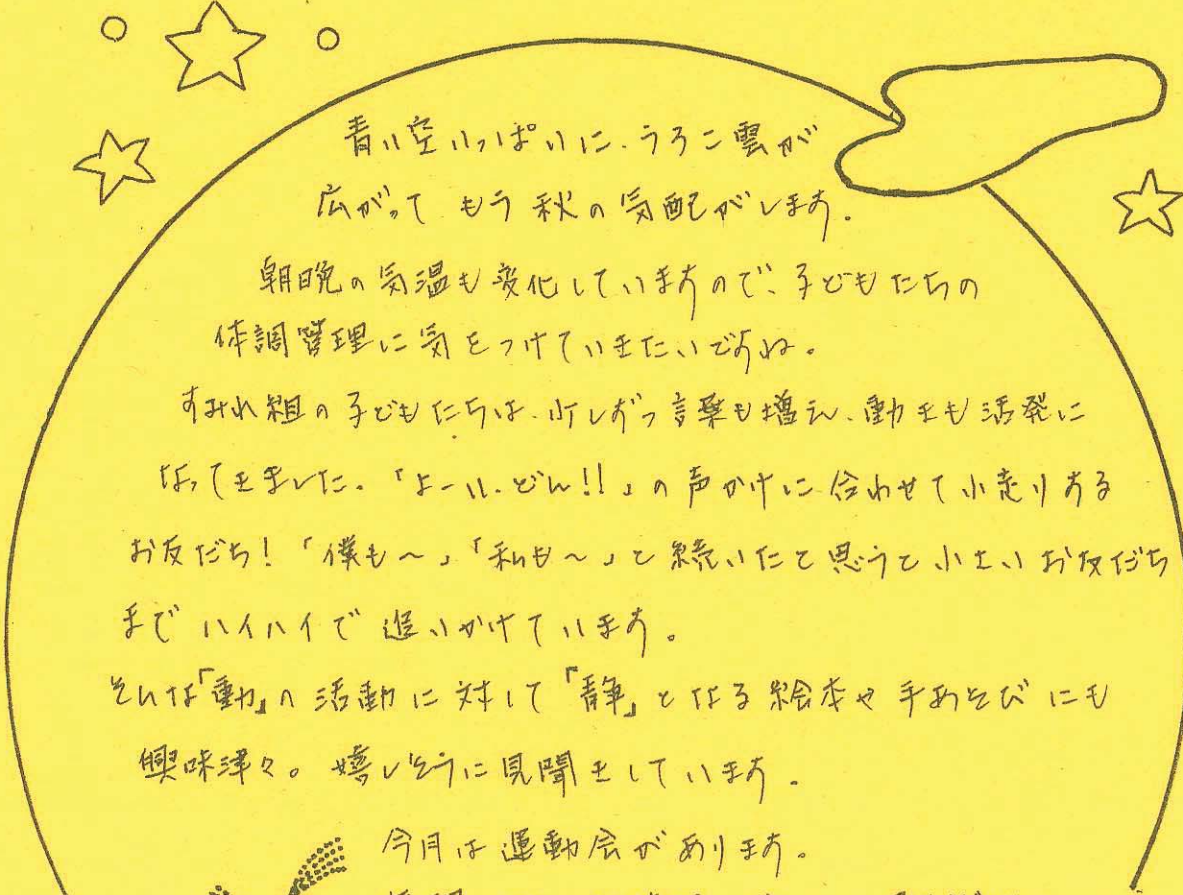 青い空いっぱいに、うろこ雲が
広がって もう 秋の気配がします。
朝晩の気温も変化していますので、子どもたちの
体調管理に気をつけていきたいですね。
すみれ組の子どもたちは、少しずつ言葉も増え、動きも活発に
なってきました。「よーい、どん!!」の声かけに合わせて小走りする
お友だち!「僕も~」「私も~」と続いたと思うと小さいお友だち
まで ハイハイで 追いかけています。
そんな「動」の活動に対して「静」となる絵本や手あそびにも
興味津々。嬉しそうに見聞きしています。
今月は運動会があります。